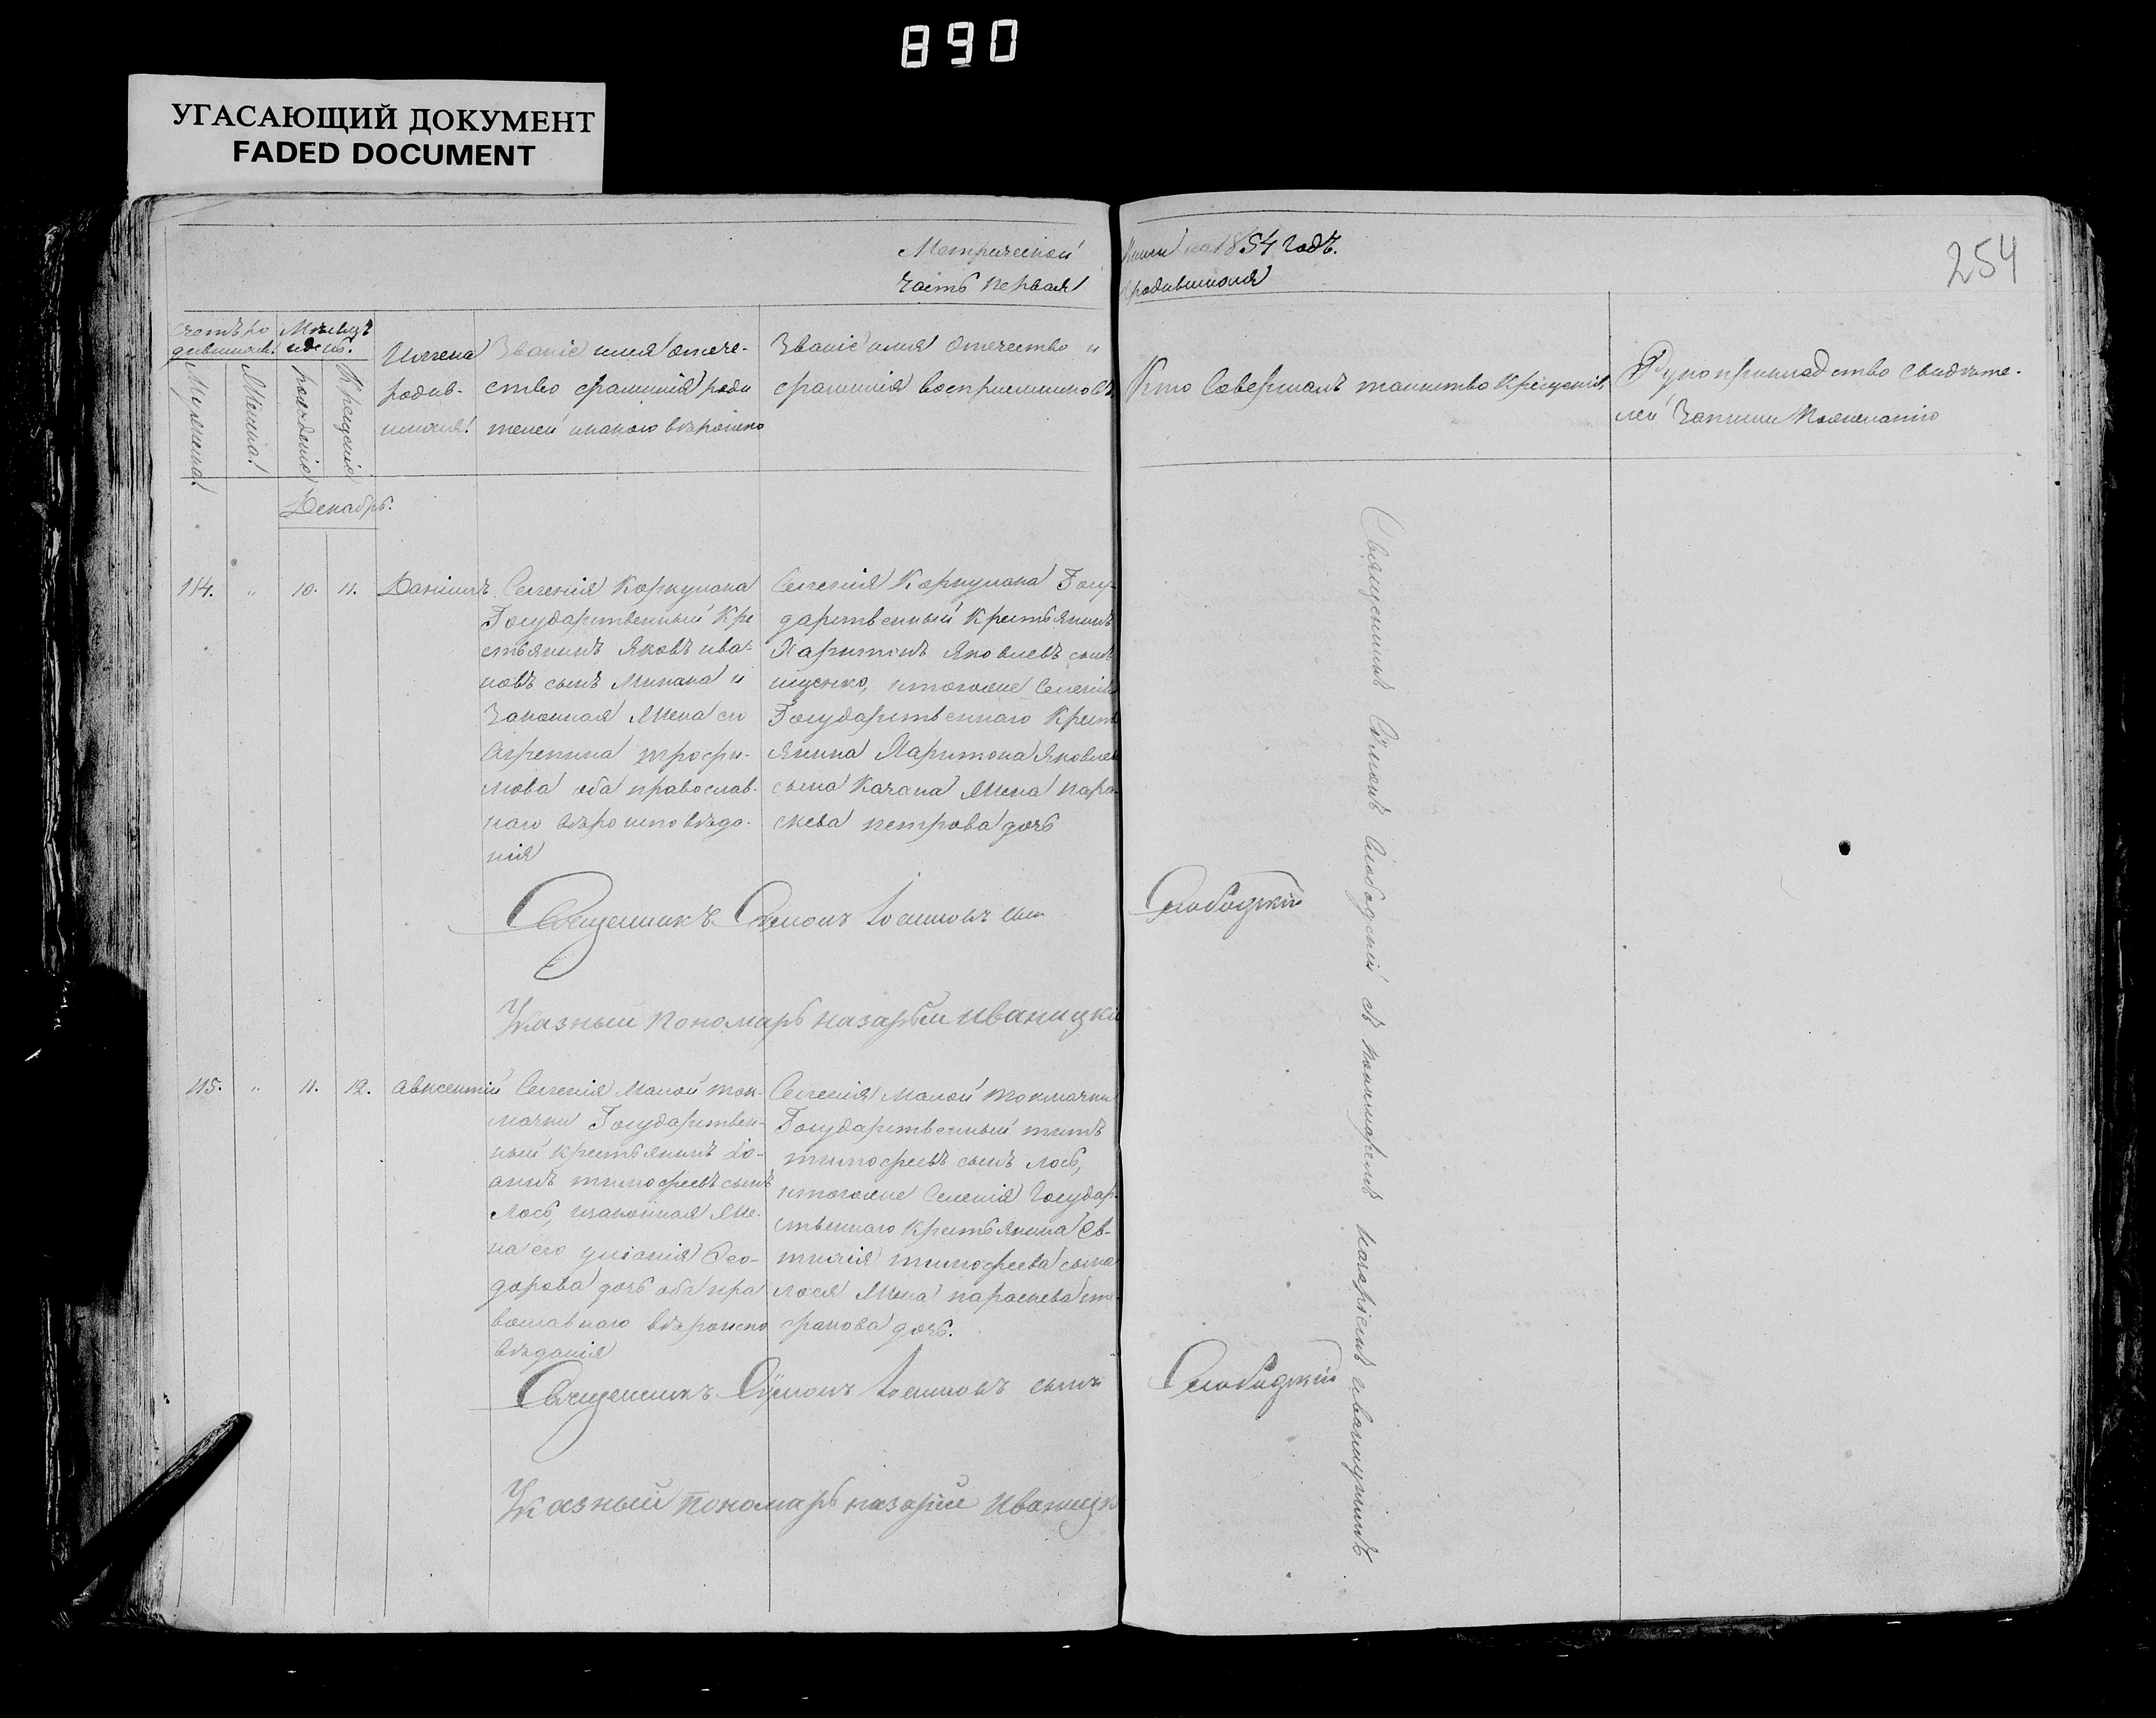 890
УГАСАЮЩИЙ ДОКУМЕНТ
FADED DOCUMENT
254
Метрической книги на 1854 годъ.
часть первая о родившихся
Счетъ ро
дившихся.
Мужеска.
Женска.
Мѣсяцъ
и день.
рожденiя
Крещенiя
Имена
родив-
шихся.
Званiе имя отече-
ство фамилiя роди
телей и какого вѣроиспо
Званiе имя отечество и
фамилiя воспрiемниковъ
Кто Совершалъ таинство Крещенiя
Рукоприкладство свидѣте-
лей записи по желанiю
Декабрь.
114. " 10. 11. Данiилъ
Селенiя Коркушана
Государственный Кре
стьянинъ Яковъ ива-
новъ сынъ Минака и
Законная Жена его
Агрепина трофи-
мова оба православ-
наго вѣроисповѣда-
нiя
Селенiя Коркушана Госу-
дарственный Крестьянинъ
Харитонъ Яковлевъ сынъ
тогоже Селенiя
Государственнаго Крест
янина Харитона Яковлев
сына Качана Жена пара-
скева петрова дочь
Священникъ Симонъ Iоанновъ сынъ Слободзкiй
Указный пономарь назарѣй иваницкi
115. " 11. 12. Авксентiй
Селенiя Малой ток-
мачки Государствен-
ный крестьянинъ Iо-
аннъ тимофеевъ сынъ
Лось, изаконная Же-
на его улiанiя Фео-
дорова дочь оба пра
вославнаго вѣроиспо
вѣданiя
Селенiя малой токмачки
Государственный титъ
тимофеевъ сынъ лось,
итогоже Селенiя Государ-
ственнаго Крестьянина Ев-
тихiя тимофеева сына
лося Жена параскева сте-
фанова дочь.
Священникъ Симонъ Iоанновъ сынъ Слободзкiй
Указный пономарь назарiй Иваницк
Священникъ Симонъ Слободскiй съ пономаремъ назарiемъ иваницкимъ.